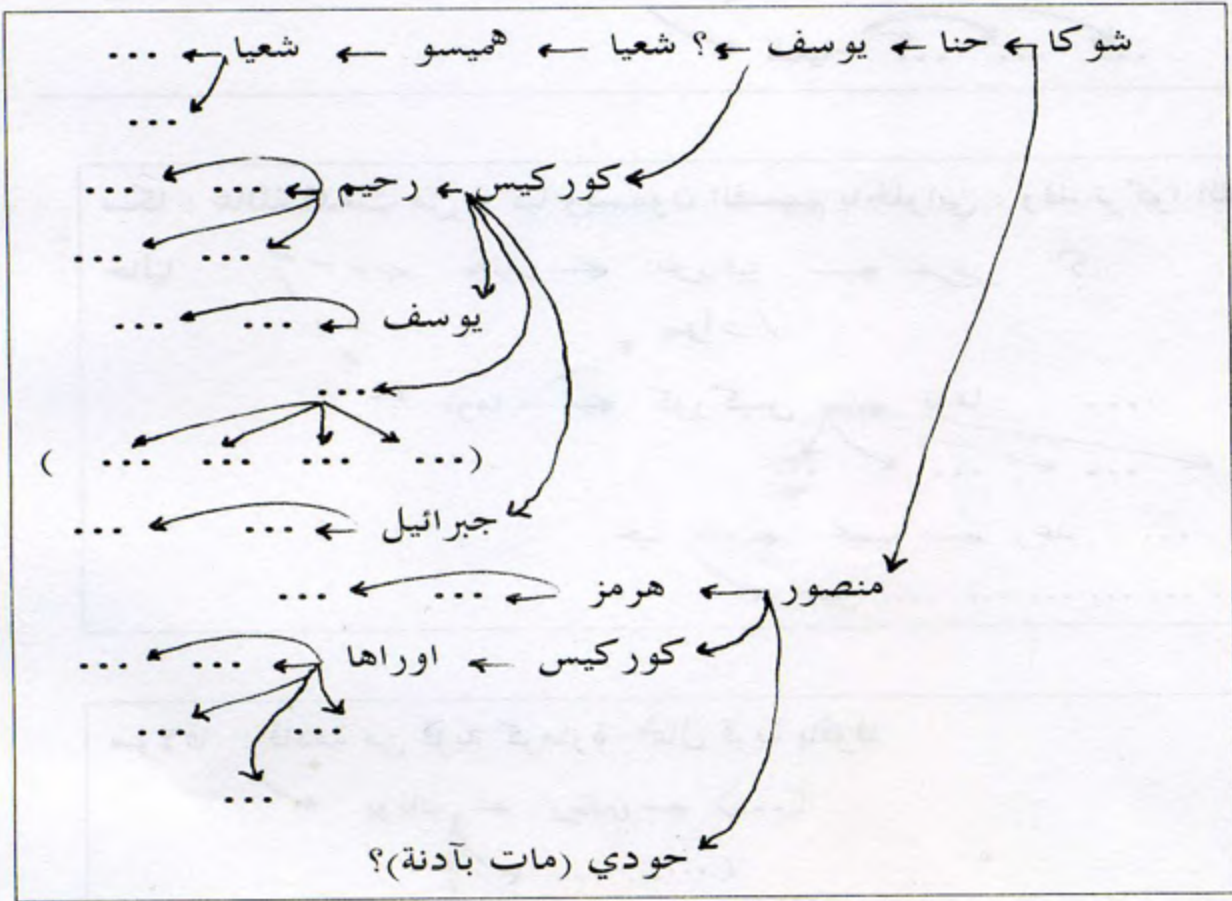 شوكا ← حنا ← يوسف ←؟ شعيا ← هميسو ← شعيا ← ...
...
كوركيس ← رحيم ← ... ...
... ...
يوسف ← ... ...
...
(... ... ... ...)
جبرائيل ← ... ...
منصور ← هرمز ← ... ...
كوركيس ← اوراها ← ... ...
... ...
...
حودي (مات بآدنة)؟